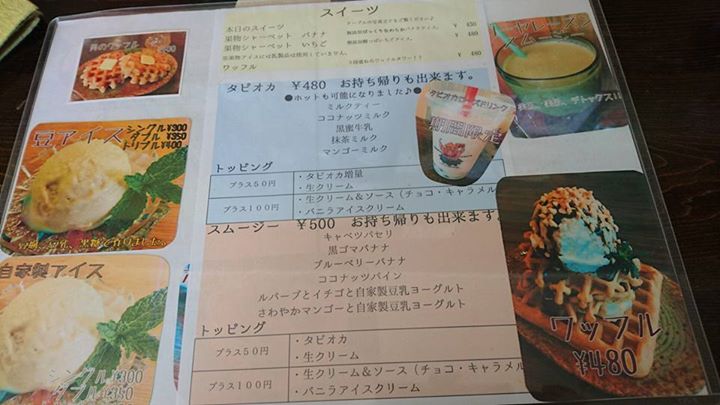 スイーツ
本日のスイーツ ¥ 450
果物シャーベット バナナ ¥ 480
果物シャーベット いちご ¥ 480
ワッフル ¥ 480
¥480
豆アイス
シングル¥300
ダブル ¥350
トリプル¥400
自家製アイス
シングル¥300
ダブル ¥350
タピオカ ¥480 お持ち帰りも出来ます。
●ホットも可能になりました♪●
ミルクティー
ココナッツミルク
黒蜜牛乳
抹茶ミルク
マンゴーミルク
トッピング
プラス50円
・タピオカ増量
・生クリーム
プラス100円
・生クリーム&ソース(チョコ・キャラメル
・バニラアイスクリーム
スムージー ¥500 お持ち帰りも出来ます。
キャベツパセリ
黒ゴマバナナ
ブルーベリーバナナ
ココナッツパイン
ルバーブとイチゴと自家製豆乳ヨーグルト
さわやかマンゴーと自家製豆乳ヨーグルト
トッピング
プラス50円
・タピオカ
・生クリーム
プラス100円
・生クリーム&ソース(チョコ・キャラメル
・バニラアイスクリーム
期間限定
ワッフル
¥480